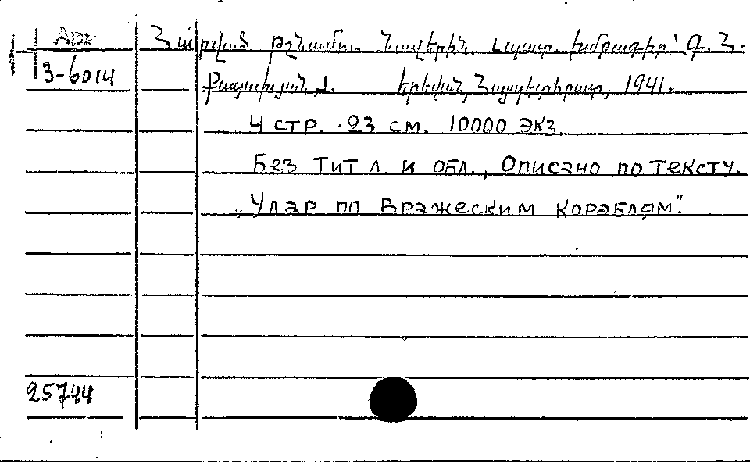 Арм
3-6014
Հարված թշնամու նավերին. Պատ. խմբագիր՝ Գ. Հ.
Երևան, Հայպետհրատ, 1941.
4 стр. 23 см. 10000 экз.
Без тит л. и обл., Описано по тексту.
"Удар по вражеским кораблям".
25744